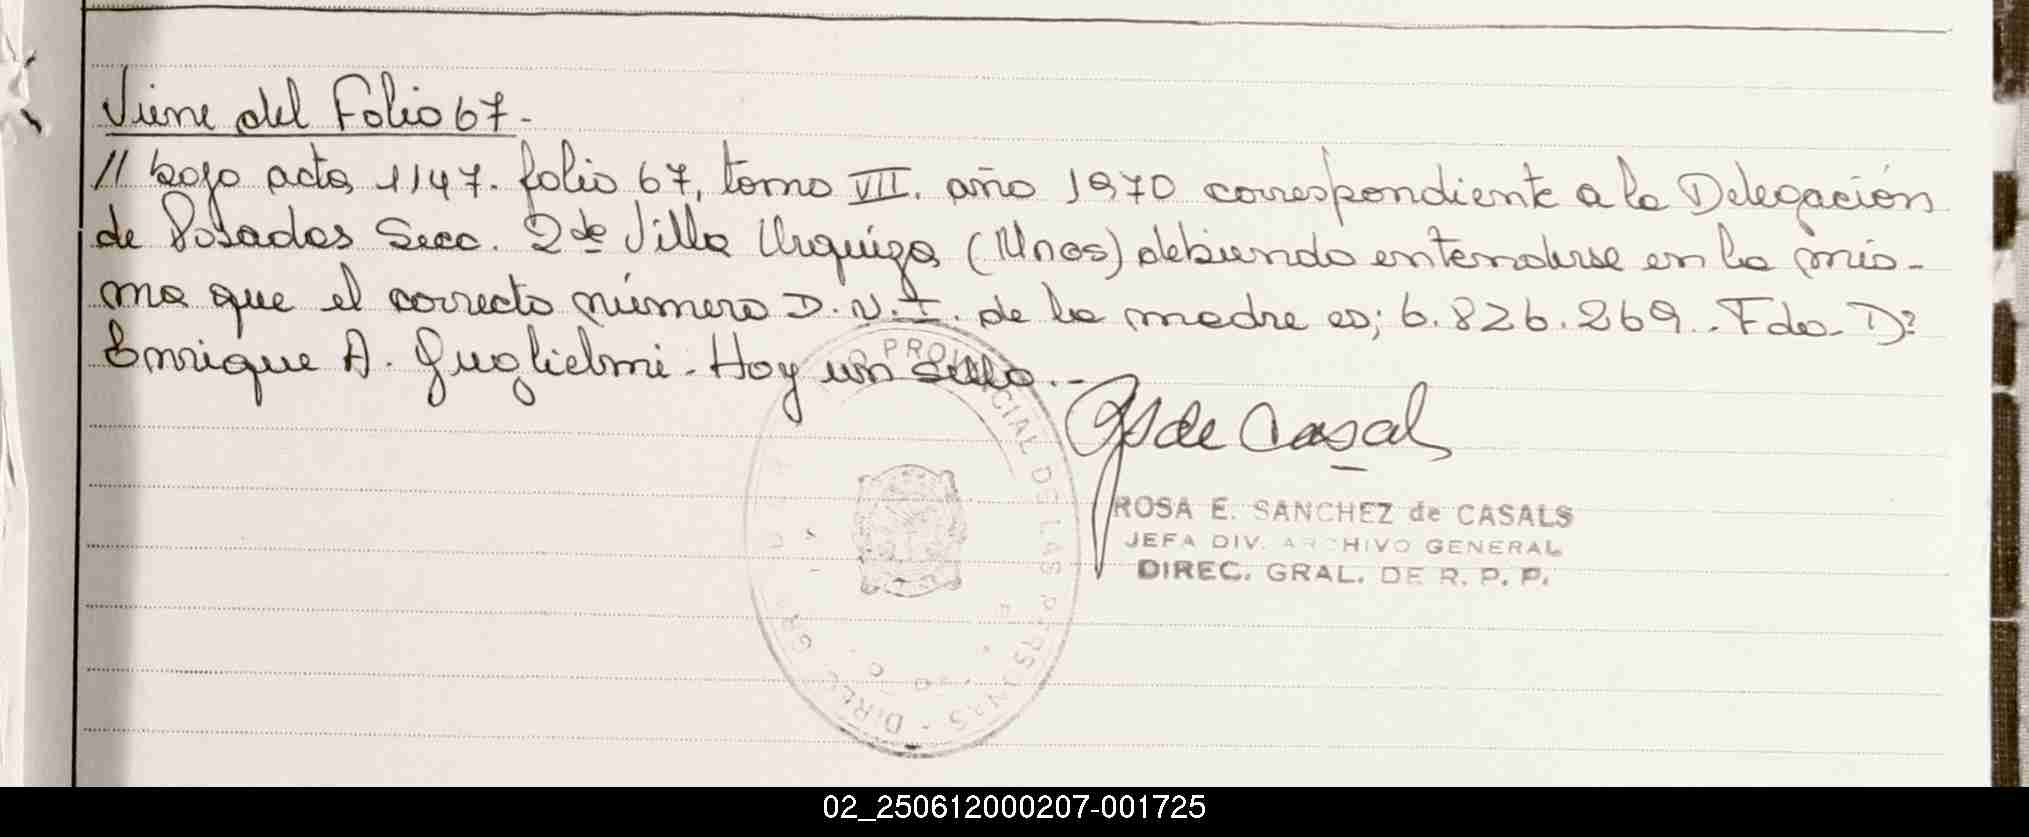 Viene del Folio 67.-
// bajo acta 1147. folio 67, tomo VII. año 1970 correspondiente a la Delegación
de Posadas Secc. 2da Villa Urquiza (Mnes) debiendo entenderse en la mis-
ma que el correcto número D.N.I. de la madre es; 6.826.269.. Fdo. Dr
Enrique A. Guglielmi. Hay un sello..-
de Casal
PROVINCIAL DE LAS PERSONAS - DIREC
ROSA E. SANCHEZ de CASALS
JEFA DIV. ARCHIVO GENERAL
DIREC. GRAL. DE R. P. P.
02_250612000207-001725